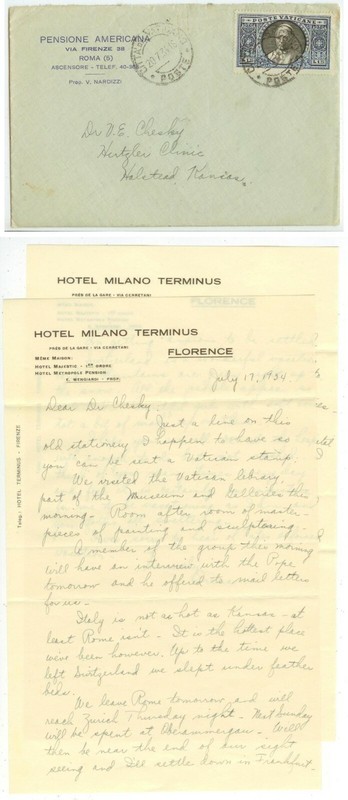 PENSIONE AMERICANA
VIA FIRENZE 38
ROMA (5)
ASCENSORE - TELEF. 40-38
Prop. V. NARDIZZI
POSTE VATICANE
POSTE
Dr V.E. Chesky
Hertzler Clinic
Halstead, Kansas.
HOTEL MILANO TERMINUS
PRÈS DE LA GARE - VIA CERRETANI
FLORENCE
HOTEL MILANO TERMINUS
PRÈS DE LA GARE - VIA CERRETANI
FLORENCE
MÊME MAISON:
HOTEL MAJESTIC - 1er ORDRE
HOTEL METROPOLE PENSION
PROP.
Teleg.: HOTEL TERMINUS - FIRENZE
July 17, 1934
Dear Dr Chesky
Just a line on this
old stationery I happen to have so
you can be sent a Vatican stamp.
We visited the Vatican library,
part of the Museum and Galleries this
morning. Room after room of master-
pieces of painting and sculptoring.
A member of the group this morning
will have an interview with the Pope
tomorrow and he offered to mail letters
for us.
Italy is not as hot as Kansas - at
least Rome isn't. It is the hottest place
we've been however. Up to the time we
left Switzerland we slept under feather
beds.
We leave Rome tomorrow and will
reach Zurich Thursday night. Next Sunday
will be spent at Oberammergau. We'll
then be near the end of our sight
seeing and I'll settle down in Frankfurt.